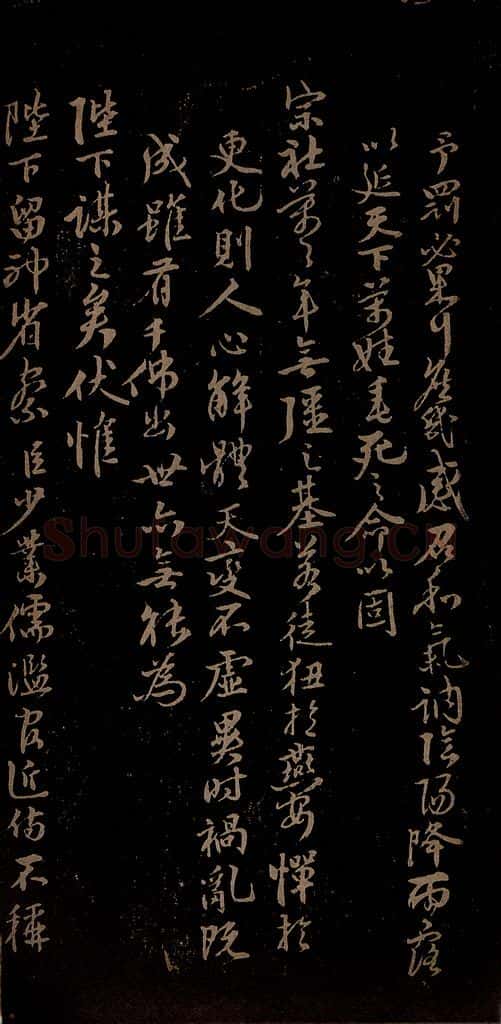 予罰必果可庶幾感召和氣訥陰陽降雨露
以延天下萬姓垂死之命以固
宗社萬々年無疆之基若徒狃於燕安憚於
更化則人心解體天變不虛異時禍亂既
成雖有千佛出世亦無能為
陛下謀之矣伏惟
陛下留神省察臣少業儒濫官近侍不稱
Shufawang.cn